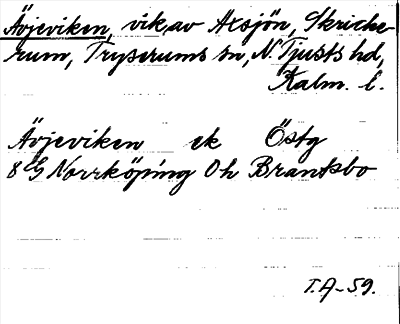 Ävjeviken, vik av Axsjön, Skricke-
rum, Tryserums sn, N. Tjusts hd,
Kalm. l.
Ävjeviken ek Östg
8 G Norrköping Oh Brantsbo
T.A-59.